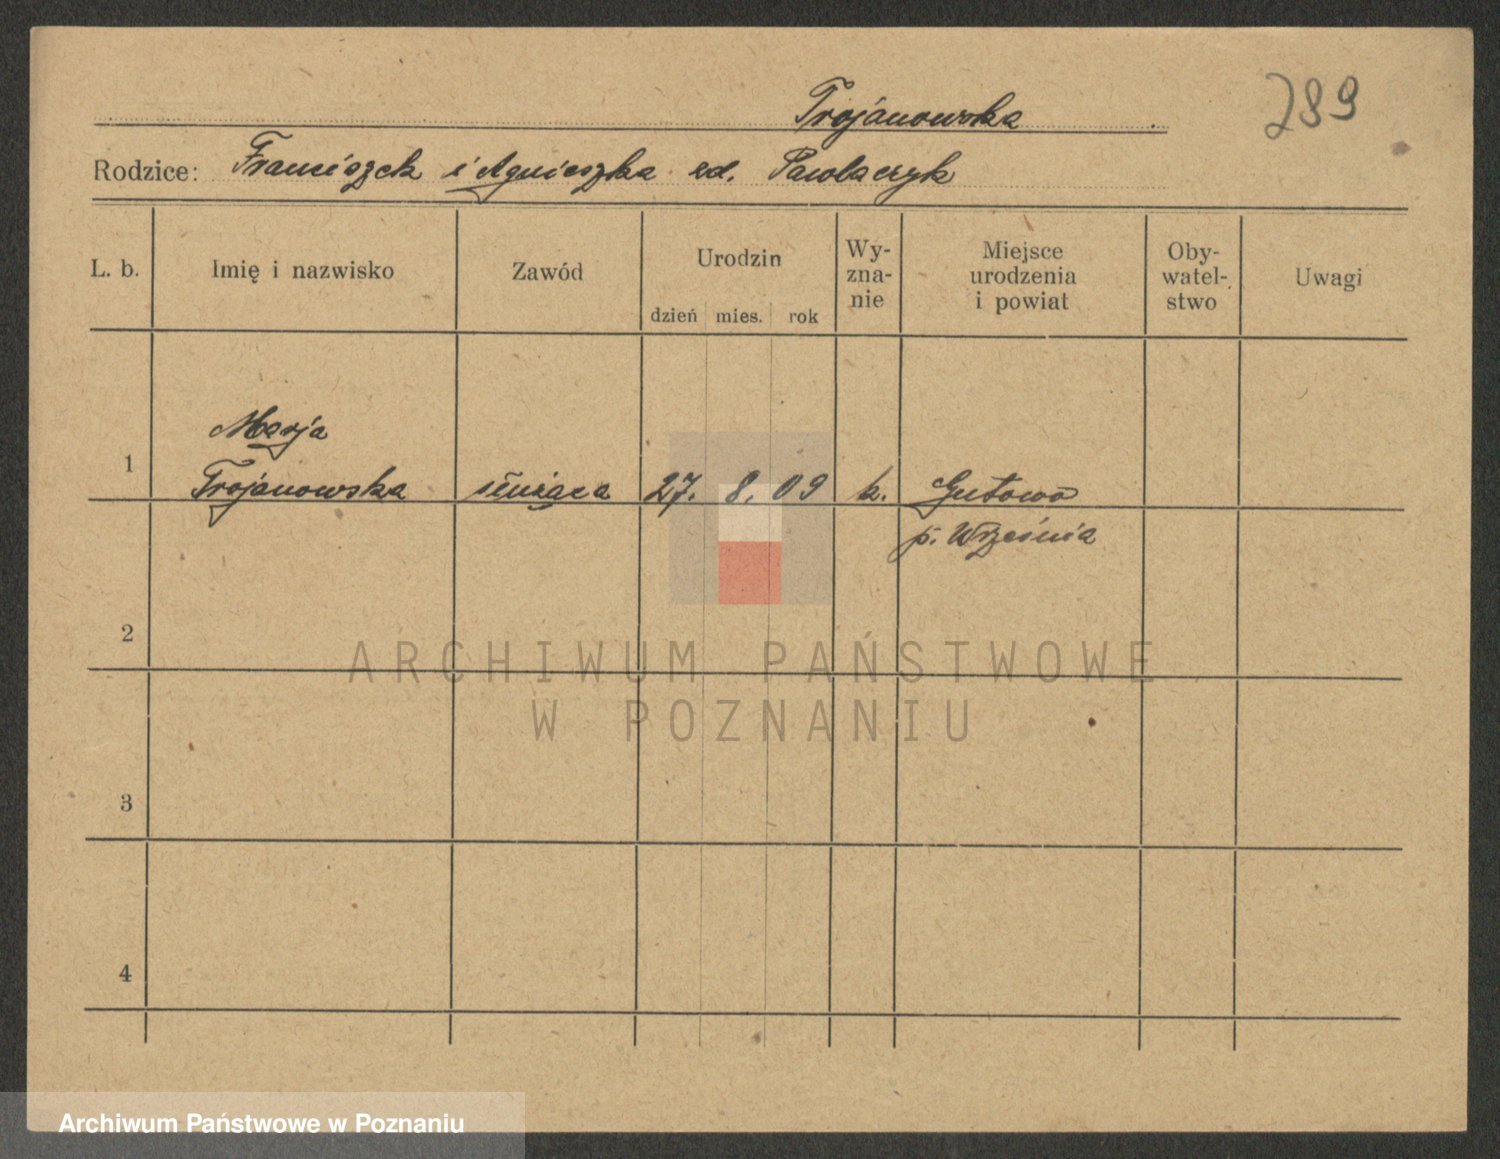 Trojanowska
789
Rodzice: Franciszek i Agnieszka zd. Pawlaczyk
L. b.
Imię i nazwisko
Zawód
Urodzin
dzień mies. rok
Wy-
zna-
nie
Miejsce
urodzenia
i powiat
Oby-
watel-
stwo
Uwagi
1
Marja
Trojanowska
służąca
27. 8. 09
k.
Gutowo
p. Września
2
3
4
ARCHIWUM PAŃSTWOWE
W POZNANIU
Archiwum Państwowe w Poznaniu